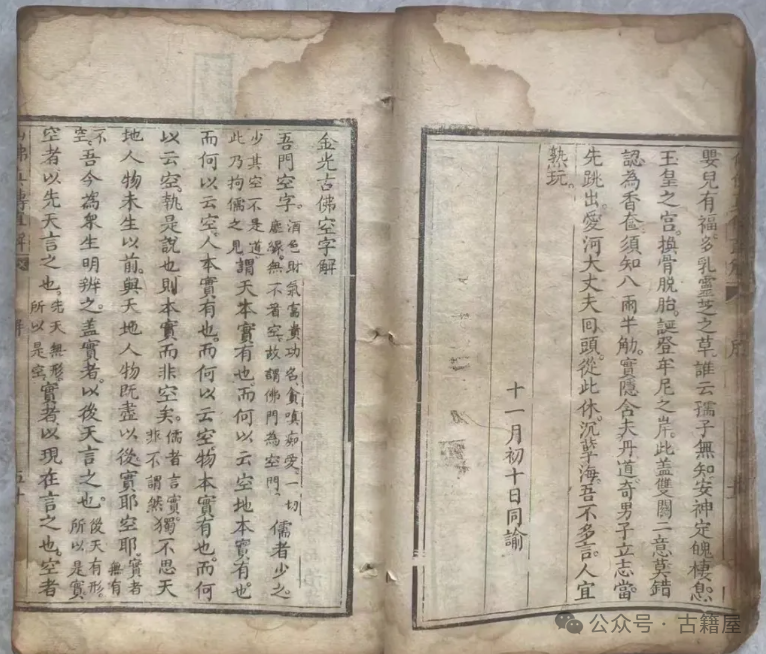 嬰兒有福多乳靈芝之草誰云孺子無知安神定魄棲息
玉皇之宮。換骨脫胎。誕登牟尼之岸。此蓋雙關二意莫錯
認為香奩須知八兩半觔。實隱含夫丹道。奇男子立志當
先跳出。愛河大丈夫回頭。從此休沉孽海。吾不多言。人宜
熟玩。
十一月初十日同諭
金光古佛空字解
吾門空字。酒色財氣富貴功名貪嗔痴愛。一切
塵緣。無不著空。故謂佛門為空門。儒者少之
少其空不是道
此乃拘儒之見謂天本實有也。而何以云空地本實有也。
而何以云空。人本實有也。而何以云空物本實有也。而何
以云空。執是說也則本實而非空矣。儒者言實
非不謂然獨不思天
地人物未生以前。與天地人物既盡以後實耶空耶。實者
無有
不
空。吾今為衆生明辨之。蓋實者。以後天言之也。後天有形
所以是實
空者以先天言之也。先天無形。
所以是空實者以現在言之也。空者
解
五十
公众号·古籍屋